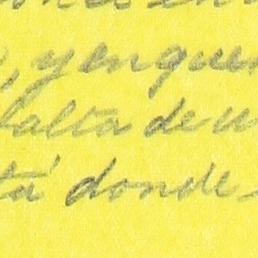 , y en que
falta de u
tá donde